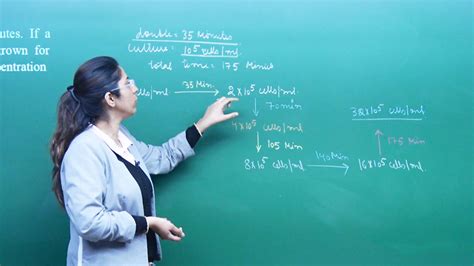 utes. If a
rown for
centration
double = 35 Minutes
culture = 10⁵ cells/ml.
total time = 175 Minutes
cells/ml. 35 Min → 2×10⁵ cells/ml.
↓ 70 min
4×10⁵ cells/ml
↓ 105 Min
8×10⁵ cells/ml 140 Min → 16×10⁵ cells/ml.
↑ 175 Min
32×10⁵ cells/ml.